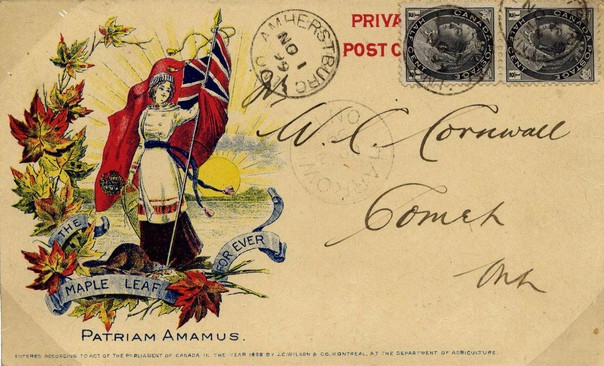 PRIVA
POST C
AMHERSTBURG
NO 1
99
CANADA POSTAGE
HALF CENT
CANADA POSTAGE
HALF CENT
HARROW
W. C. Cornwall
Comeh
Ont
THE
MAPLE LEAF
FOR EVER
PATRIAM AMAMUS.
ENTERED ACCORDING TO ACT OF THE PARLIAMENT OF CANADA IN THE YEAR 1898 BY J.C. WILSON & CO. MONTREAL, AT THE DEPARTMENT OF AGRICULTURE.